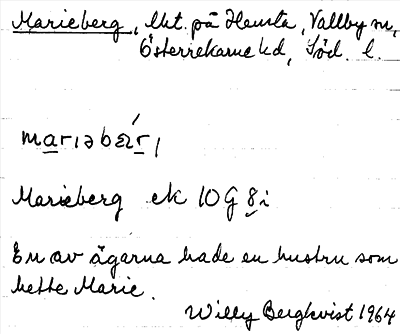 Marieberg, lht. på Hensta, Vallby sn,
Österrekarne hd, Söd. l.
mariəbær,
Marieberg ek 10G8i
En av ägarna hade en hustru som
hette Marie.
Willy Bergkvist 1964